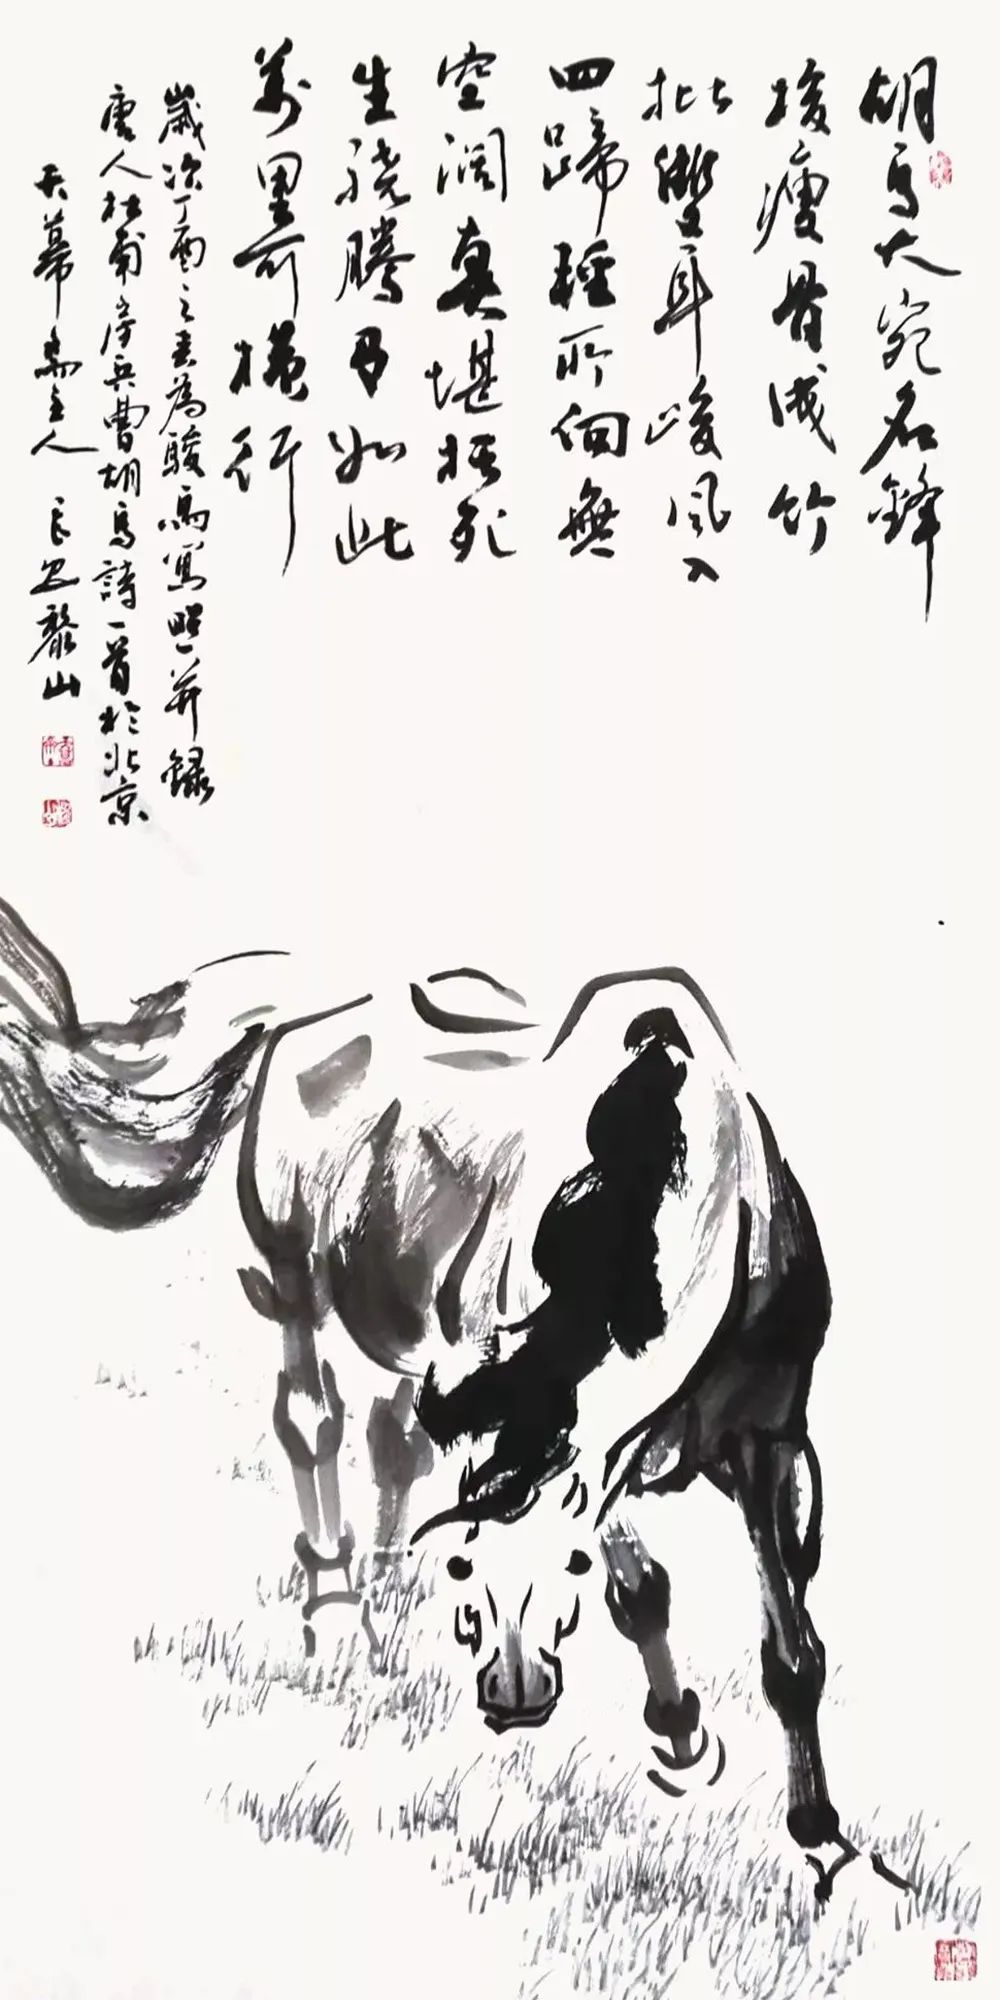 胡馬大宛名鋒
棱瘦骨成竹
批雙耳峻風入
四蹄輕所向無
空闊真堪托死
生驍騰有如此
萬里可橫行
歲次丁酉之春為駿馬寫照并錄
唐人杜甫房兵曹胡馬詩一首於北京
天幕齋主人 黎山